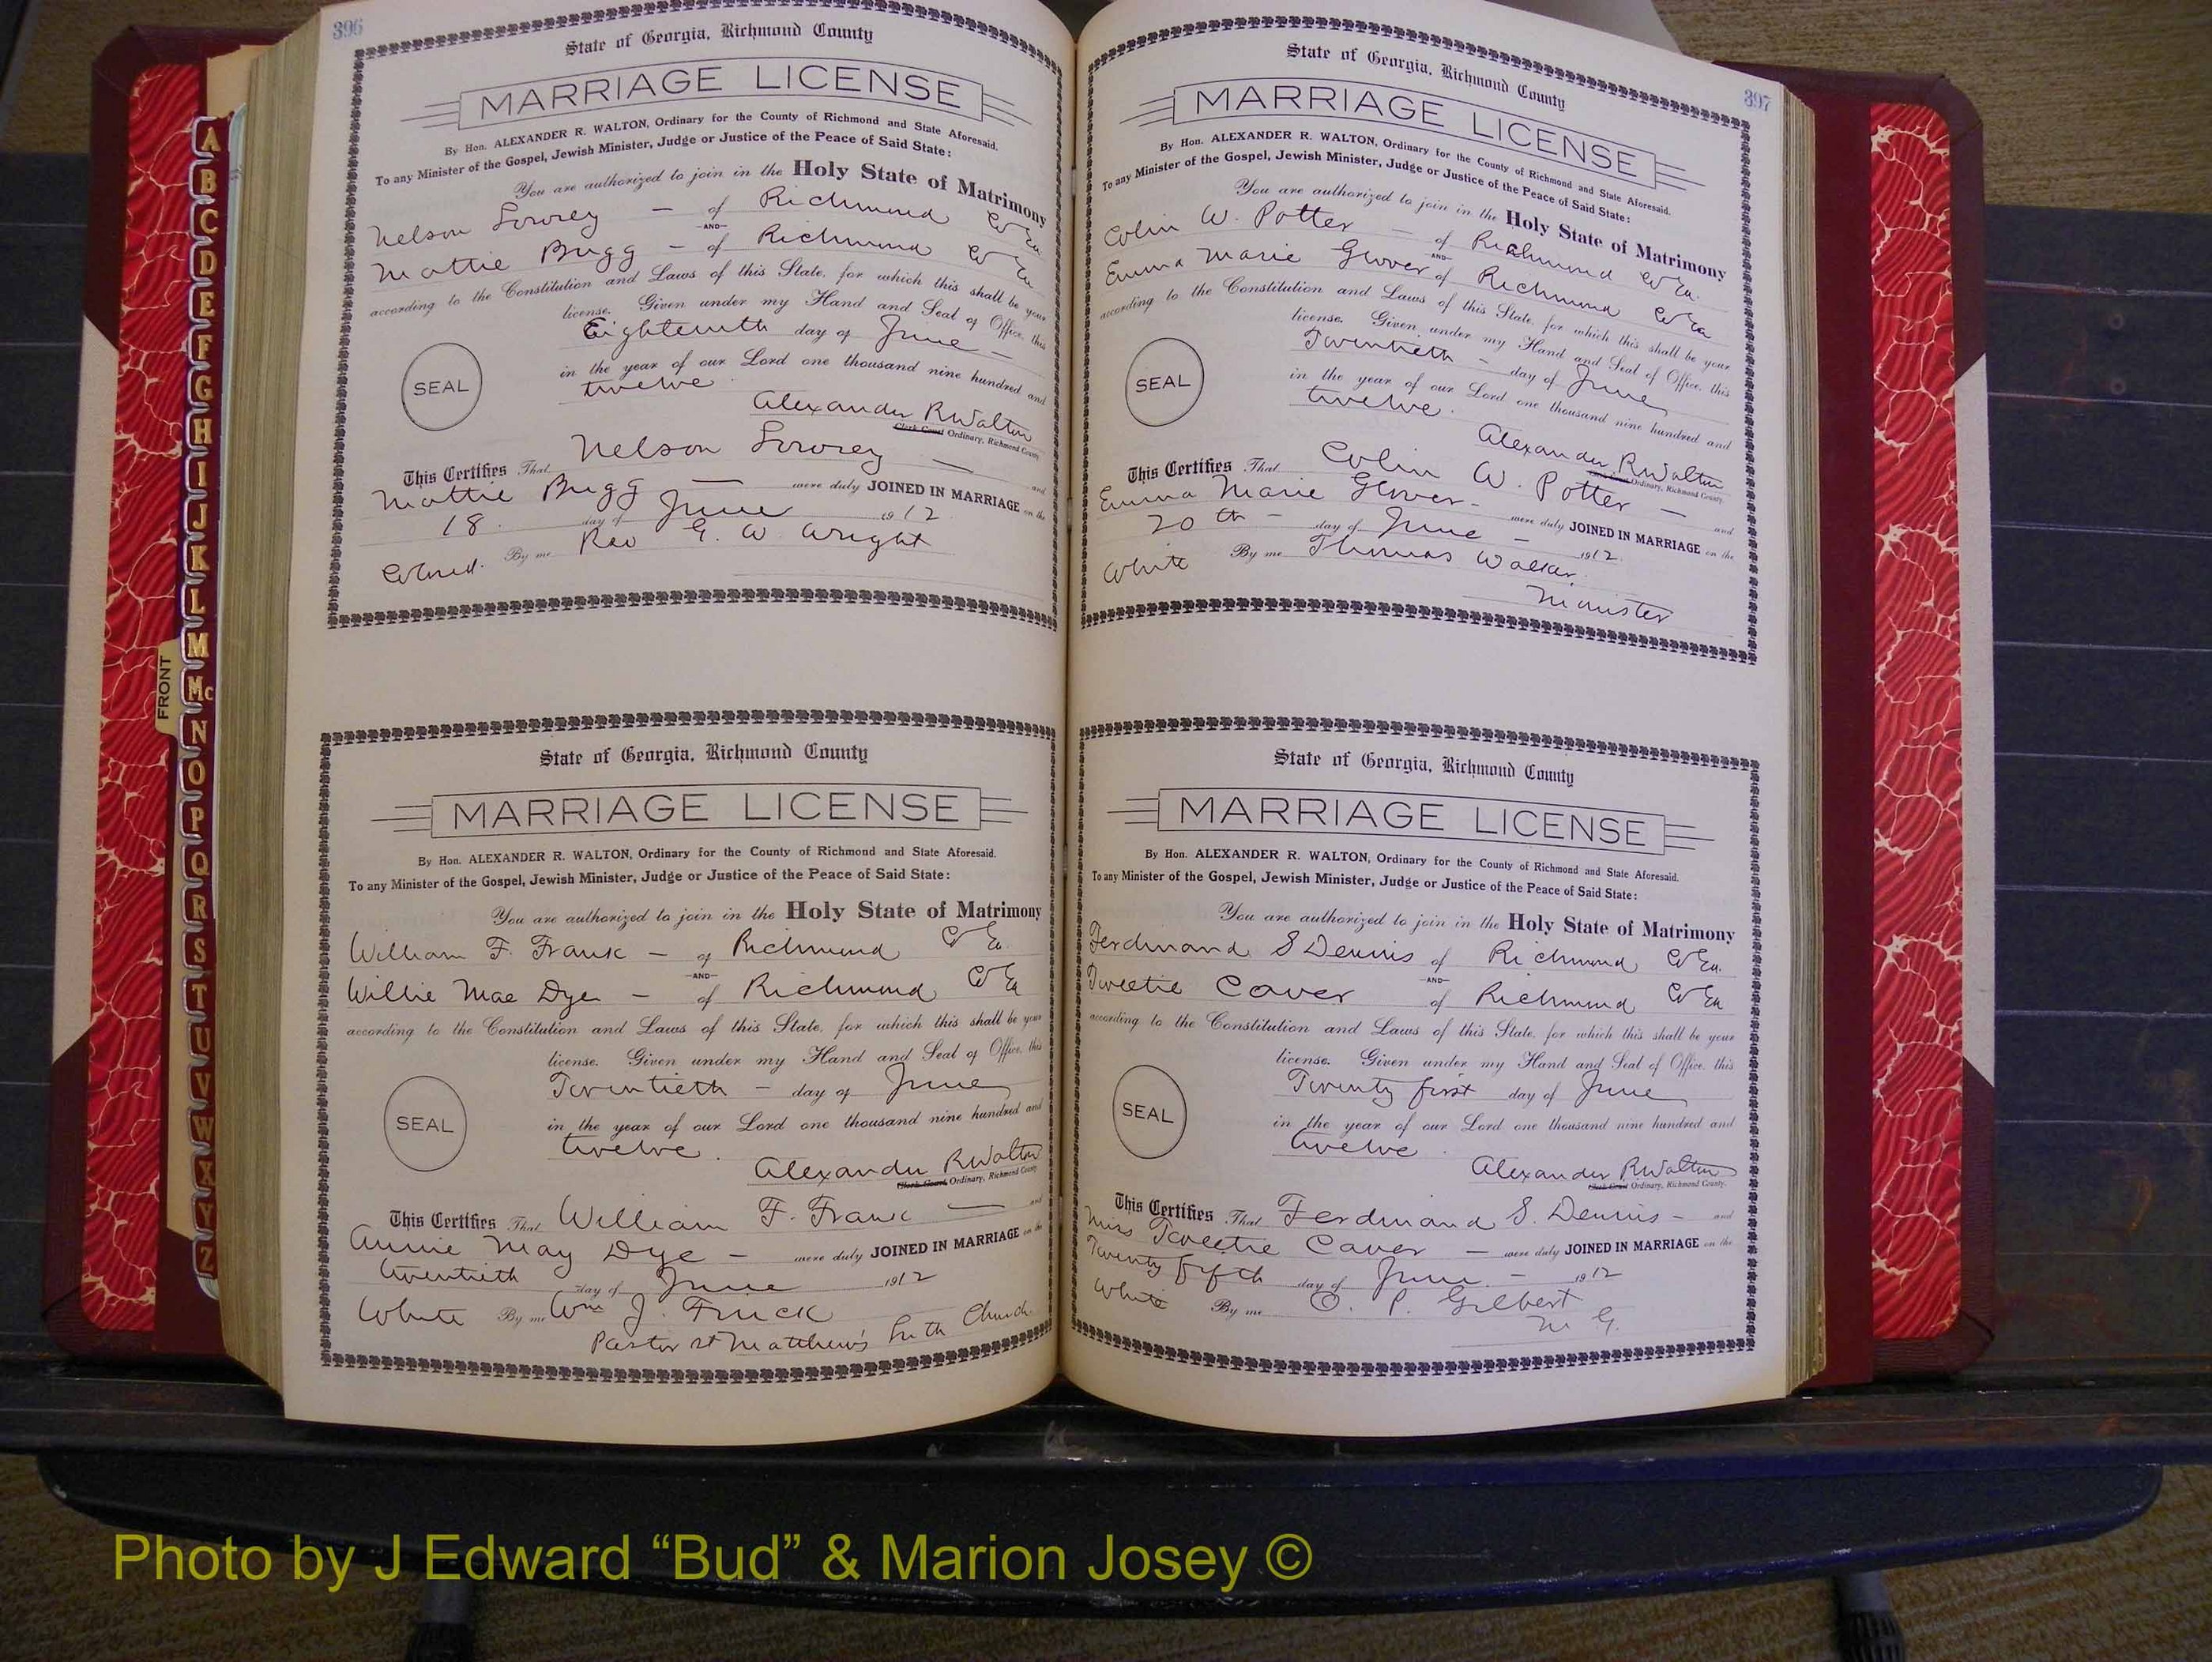 396
State of Georgia, Richmond County
MARRIAGE LICENSE
By Hon. ALEXANDER R. WALTON, Ordinary for the County of Richmond and State Aforesaid.
To any Minister of the Gospel, Jewish Minister, Judge or Justice of the Peace of Said State:
You are authorized to join in the Holy State of Matrimony
Nelson Lowrey — of Richmond Co Ga.
—AND—
Mattie Bugg — of Richmond Co Ga.
according to the Constitution and Laws of this State, for which this shall be your
license. Given under my Hand and Seal of Office, this
Eighteenth day of June —
in the year of our Lord one thousand nine hundred and
SEAL
twelve.
Alexander R Walton
Clerk Court Ordinary, Richmond County
This Certifies That Nelson Lowrey — and
Mattie Bugg — were duly JOINED IN MARRIAGE on the
18. day of June 1912
Colored. By me Rev G. W. Wright
State of Georgia, Richmond County
MARRIAGE LICENSE
By Hon. ALEXANDER R. WALTON, Ordinary for the County of Richmond and State Aforesaid.
To any Minister of the Gospel, Jewish Minister, Judge or Justice of the Peace of Said State:
You are authorized to join in the Holy State of Matrimony
William F. Frank — of Richmond Co Ga.
—AND—
Willie Mae Dye — of Richmond Co Ga
according to the Constitution and Laws of this State, for which this shall be your
license. Given under my Hand and Seal of Office, this
Twentieth — day of June
in the year of our Lord one thousand nine hundred and
SEAL
twelve.
Alexander R Walton
Clerk Court Ordinary, Richmond County
This Certifies That William F. Frank — and
Annie May Dye — were duly JOINED IN MARRIAGE on the
twentieth day of June 1912
White By me Wm J. Frick
Pastor St Matthew's Luth Church
397
State of Georgia, Richmond County
MARRIAGE LICENSE
By Hon. ALEXANDER R. WALTON, Ordinary for the County of Richmond and State Aforesaid.
To any Minister of the Gospel, Jewish Minister, Judge or Justice of the Peace of Said State:
You are authorized to join in the Holy State of Matrimony
Colin W. Potter — of Richmond Co Ga.
—AND—
Emma Marie Glover of Richmond Co Ga
according to the Constitution and Laws of this State, for which this shall be your
license. Given under my Hand and Seal of Office, this
Twentieth — day of June
in the year of our Lord one thousand nine hundred and
SEAL
twelve.
Alexander R Walton
Clerk Court Ordinary, Richmond County
This Certifies That Colin W. Potter — and
Emma Marie Glover — were duly JOINED IN MARRIAGE on the
20th — day of June — 1912.
White By me Thomas Walker.
Minister
State of Georgia, Richmond County
MARRIAGE LICENSE
By Hon. ALEXANDER R. WALTON, Ordinary for the County of Richmond and State Aforesaid.
To any Minister of the Gospel, Jewish Minister, Judge or Justice of the Peace of Said State:
You are authorized to join in the Holy State of Matrimony
Ferdinand S Dennis of Richmond Co Ga.
—AND—
Tweetie Caver of Richmond Co Ga
according to the Constitution and Laws of this State, for which this shall be your
license. Given under my Hand and Seal of Office, this
Twenty first day of June
in the year of our Lord one thousand nine hundred and
SEAL
twelve.
Alexander R Walton
Clerk Court Ordinary, Richmond County.
This Certifies That Ferdinand S. Dennis — and
Miss Tweetie Caver — were duly JOINED IN MARRIAGE on the
Twenty fifth day of June. — 1912
White By me O. P. Gilbert
M G.
A
B
C
D
E
F
G
H
I
J
K
L
M
Mc
N
O
P
Q
R
S
T
U
V
W
X
Y
Z
FRONT
Photo by J Edward “Bud” & Marion Josey ©